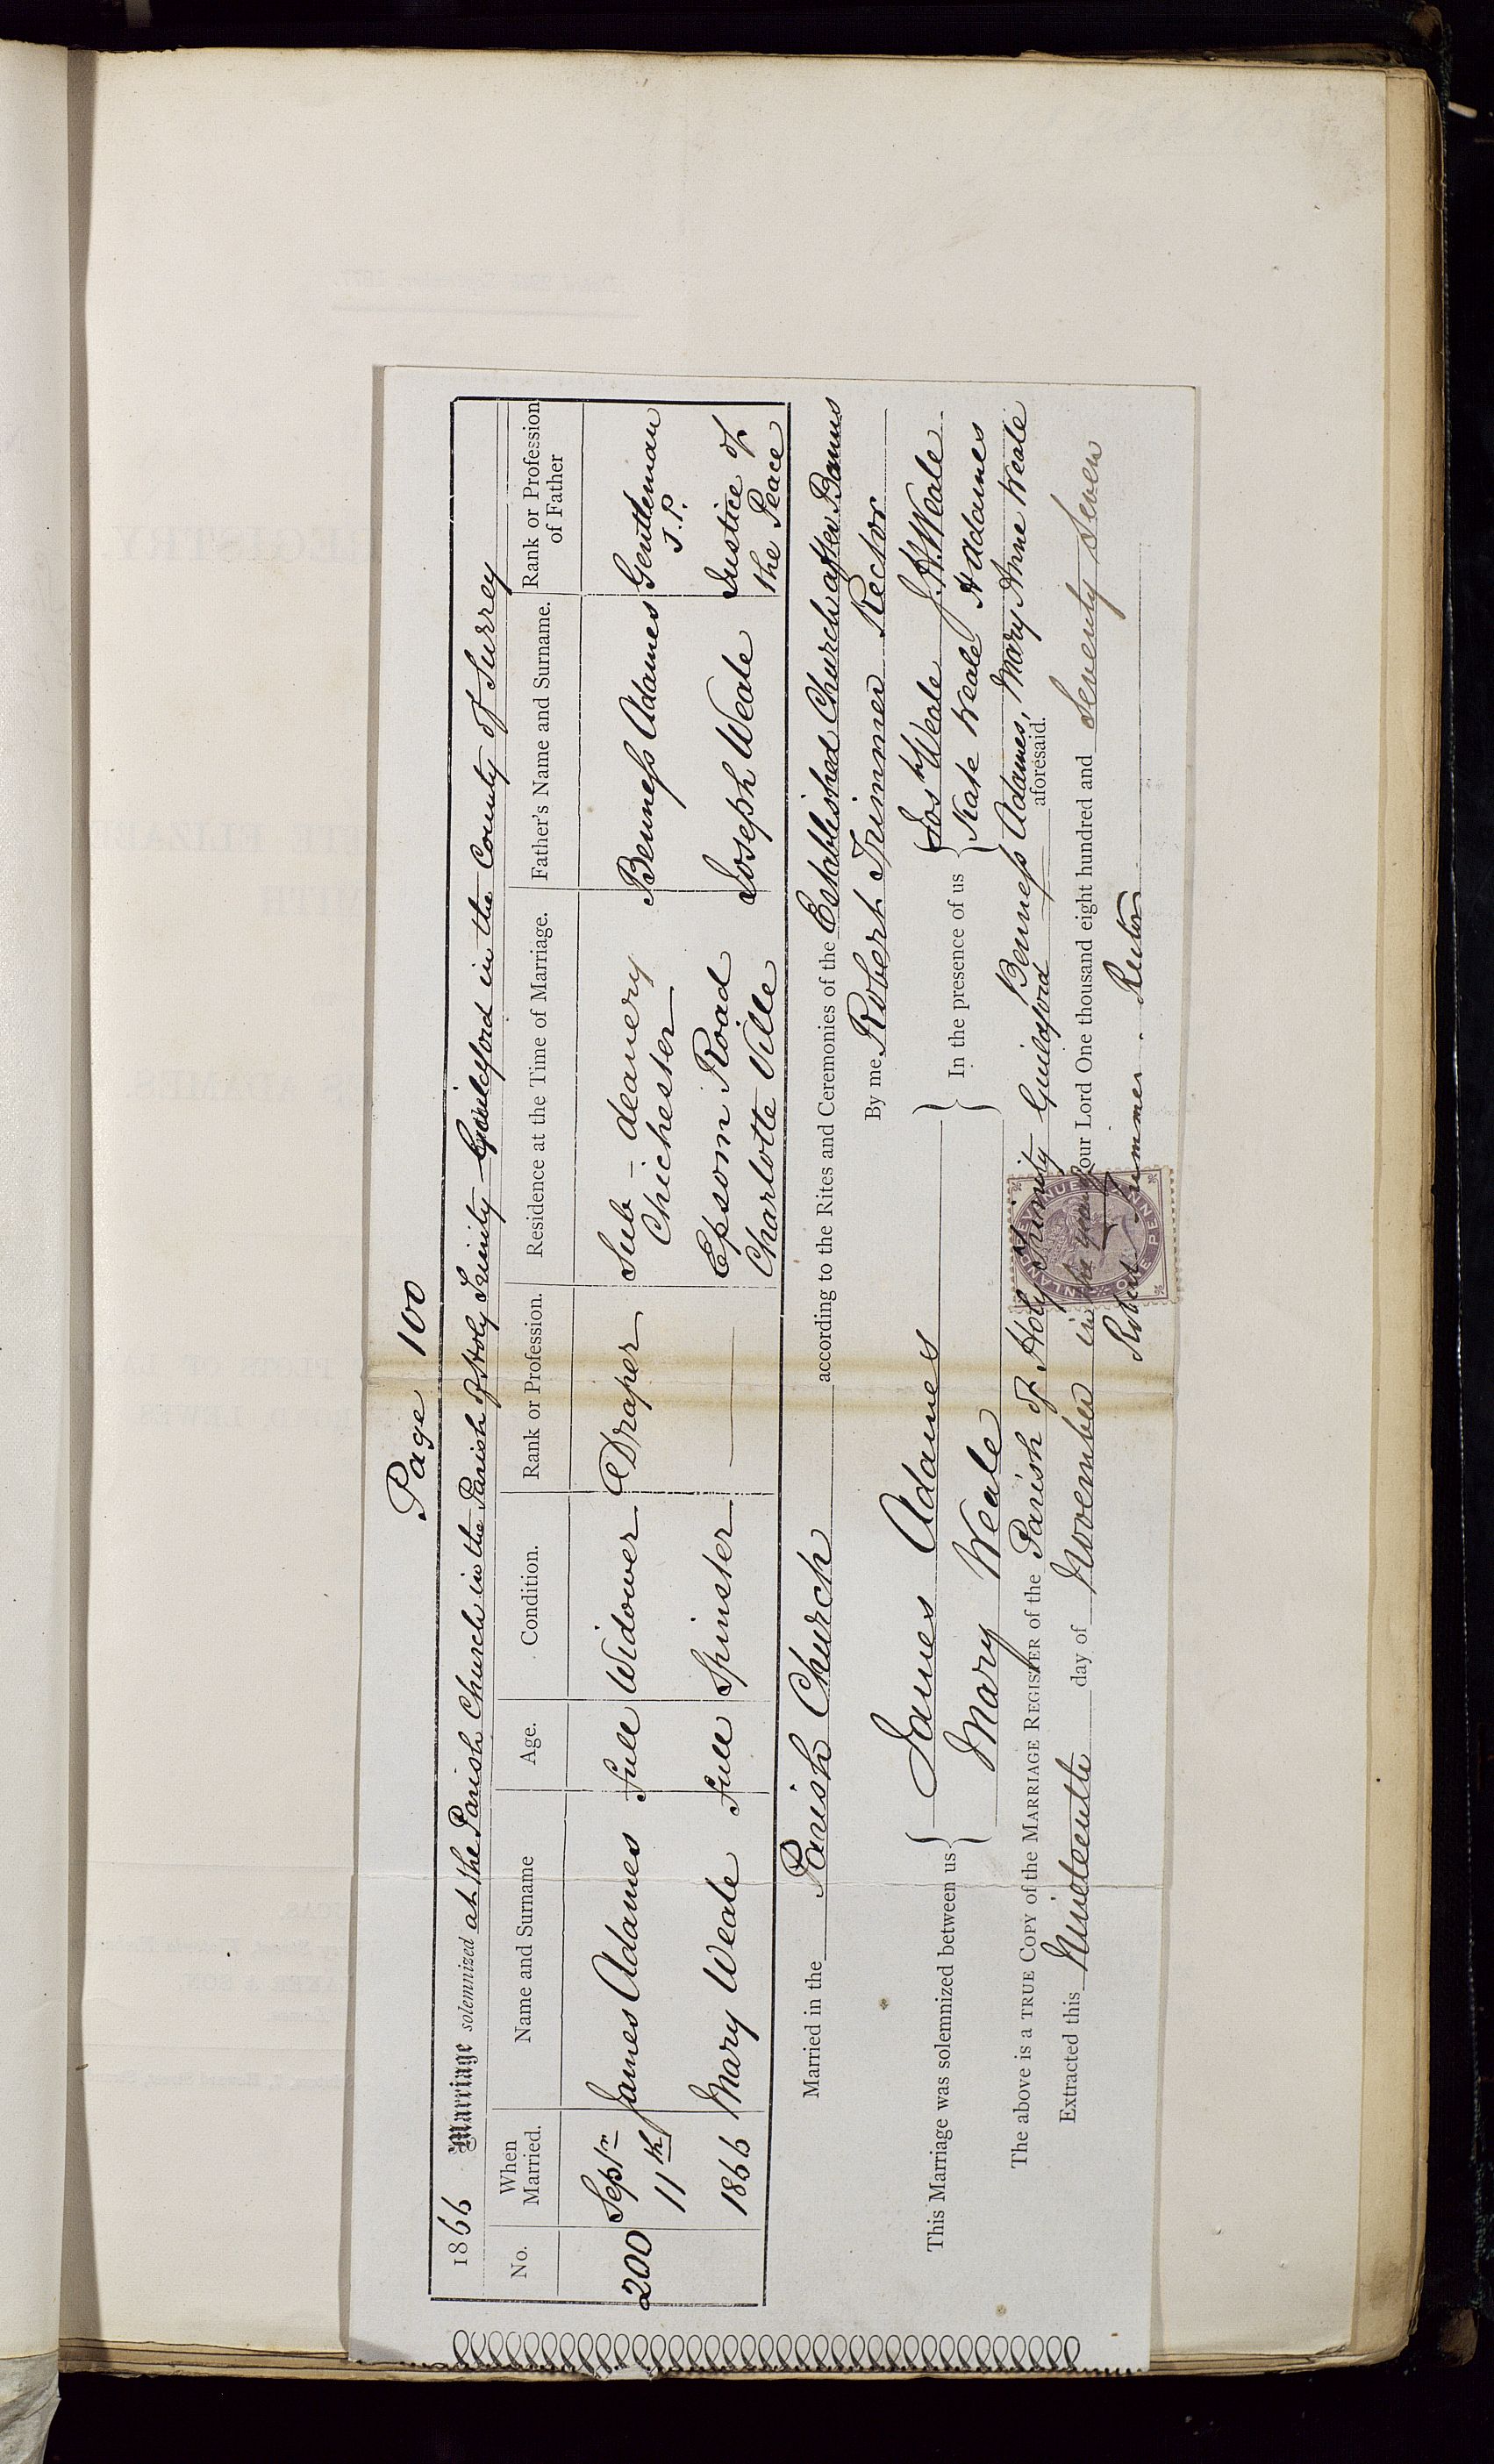 Page 100
1866 Marriage solemnized at the Parish Church in the Parish of Holy Trinity Guildford in the County of Surrey
No. When Married. Name and Surname Age. Condition. Rank or Profession. Residence at the Time of Marriage. Father's Name and Surname. Rank or Profession of Father
200 Septr 11th 1866 James Adames full Widower Draper Sub-deanery Chichester Benness Adames Gentleman J.P.
Mary Weale full Spinster — Epsom Road Charlotte Ville Joseph Weale Justice of the Peace
Married in the Parish Church according to the Rites and Ceremonies of the Established Church after Banns
By me Robert Trimmer Rector
This Marriage was solemnized between us { James Adames } In the presence of us { Josh Weale J.H. Weale
Mary Weale Kate Weale H Adames
Benness Adames, Mary Anne Weale
The above is a TRUE COPY of the MARRIAGE REGISTER of the Parish of Holy Trinity Guildford aforesaid.
Extracted this Nineteenth day of November in the year of our Lord One thousand eight hundred and Seventy Seven
Robert Trimmer. Rector
INLAND REVENUE ONE PENNY